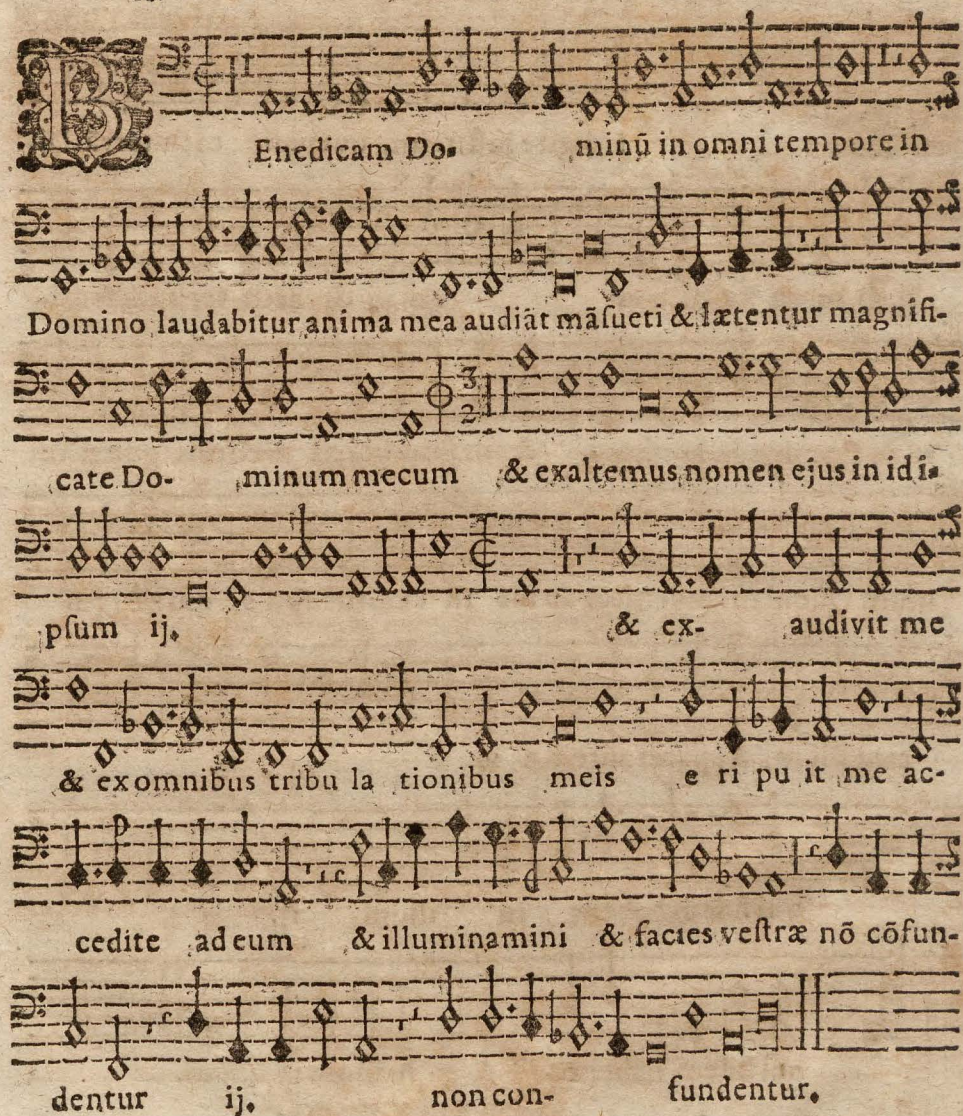 BEnedicam Do- minū in omni tempore in
Domino laudabitur anima mea audiāt māſueti & lætentur magnifi-
cate Do- minum mecum & exaltemus nomen ejus in idi-
pſum ij. & ex- audivit me
& ex omnibus tribu la tionibus meis e ri pu it me ac-
cedite ad eum & illuminamini & facies veſtræ nō cōfun-
dentur ij. non con- fundentur.